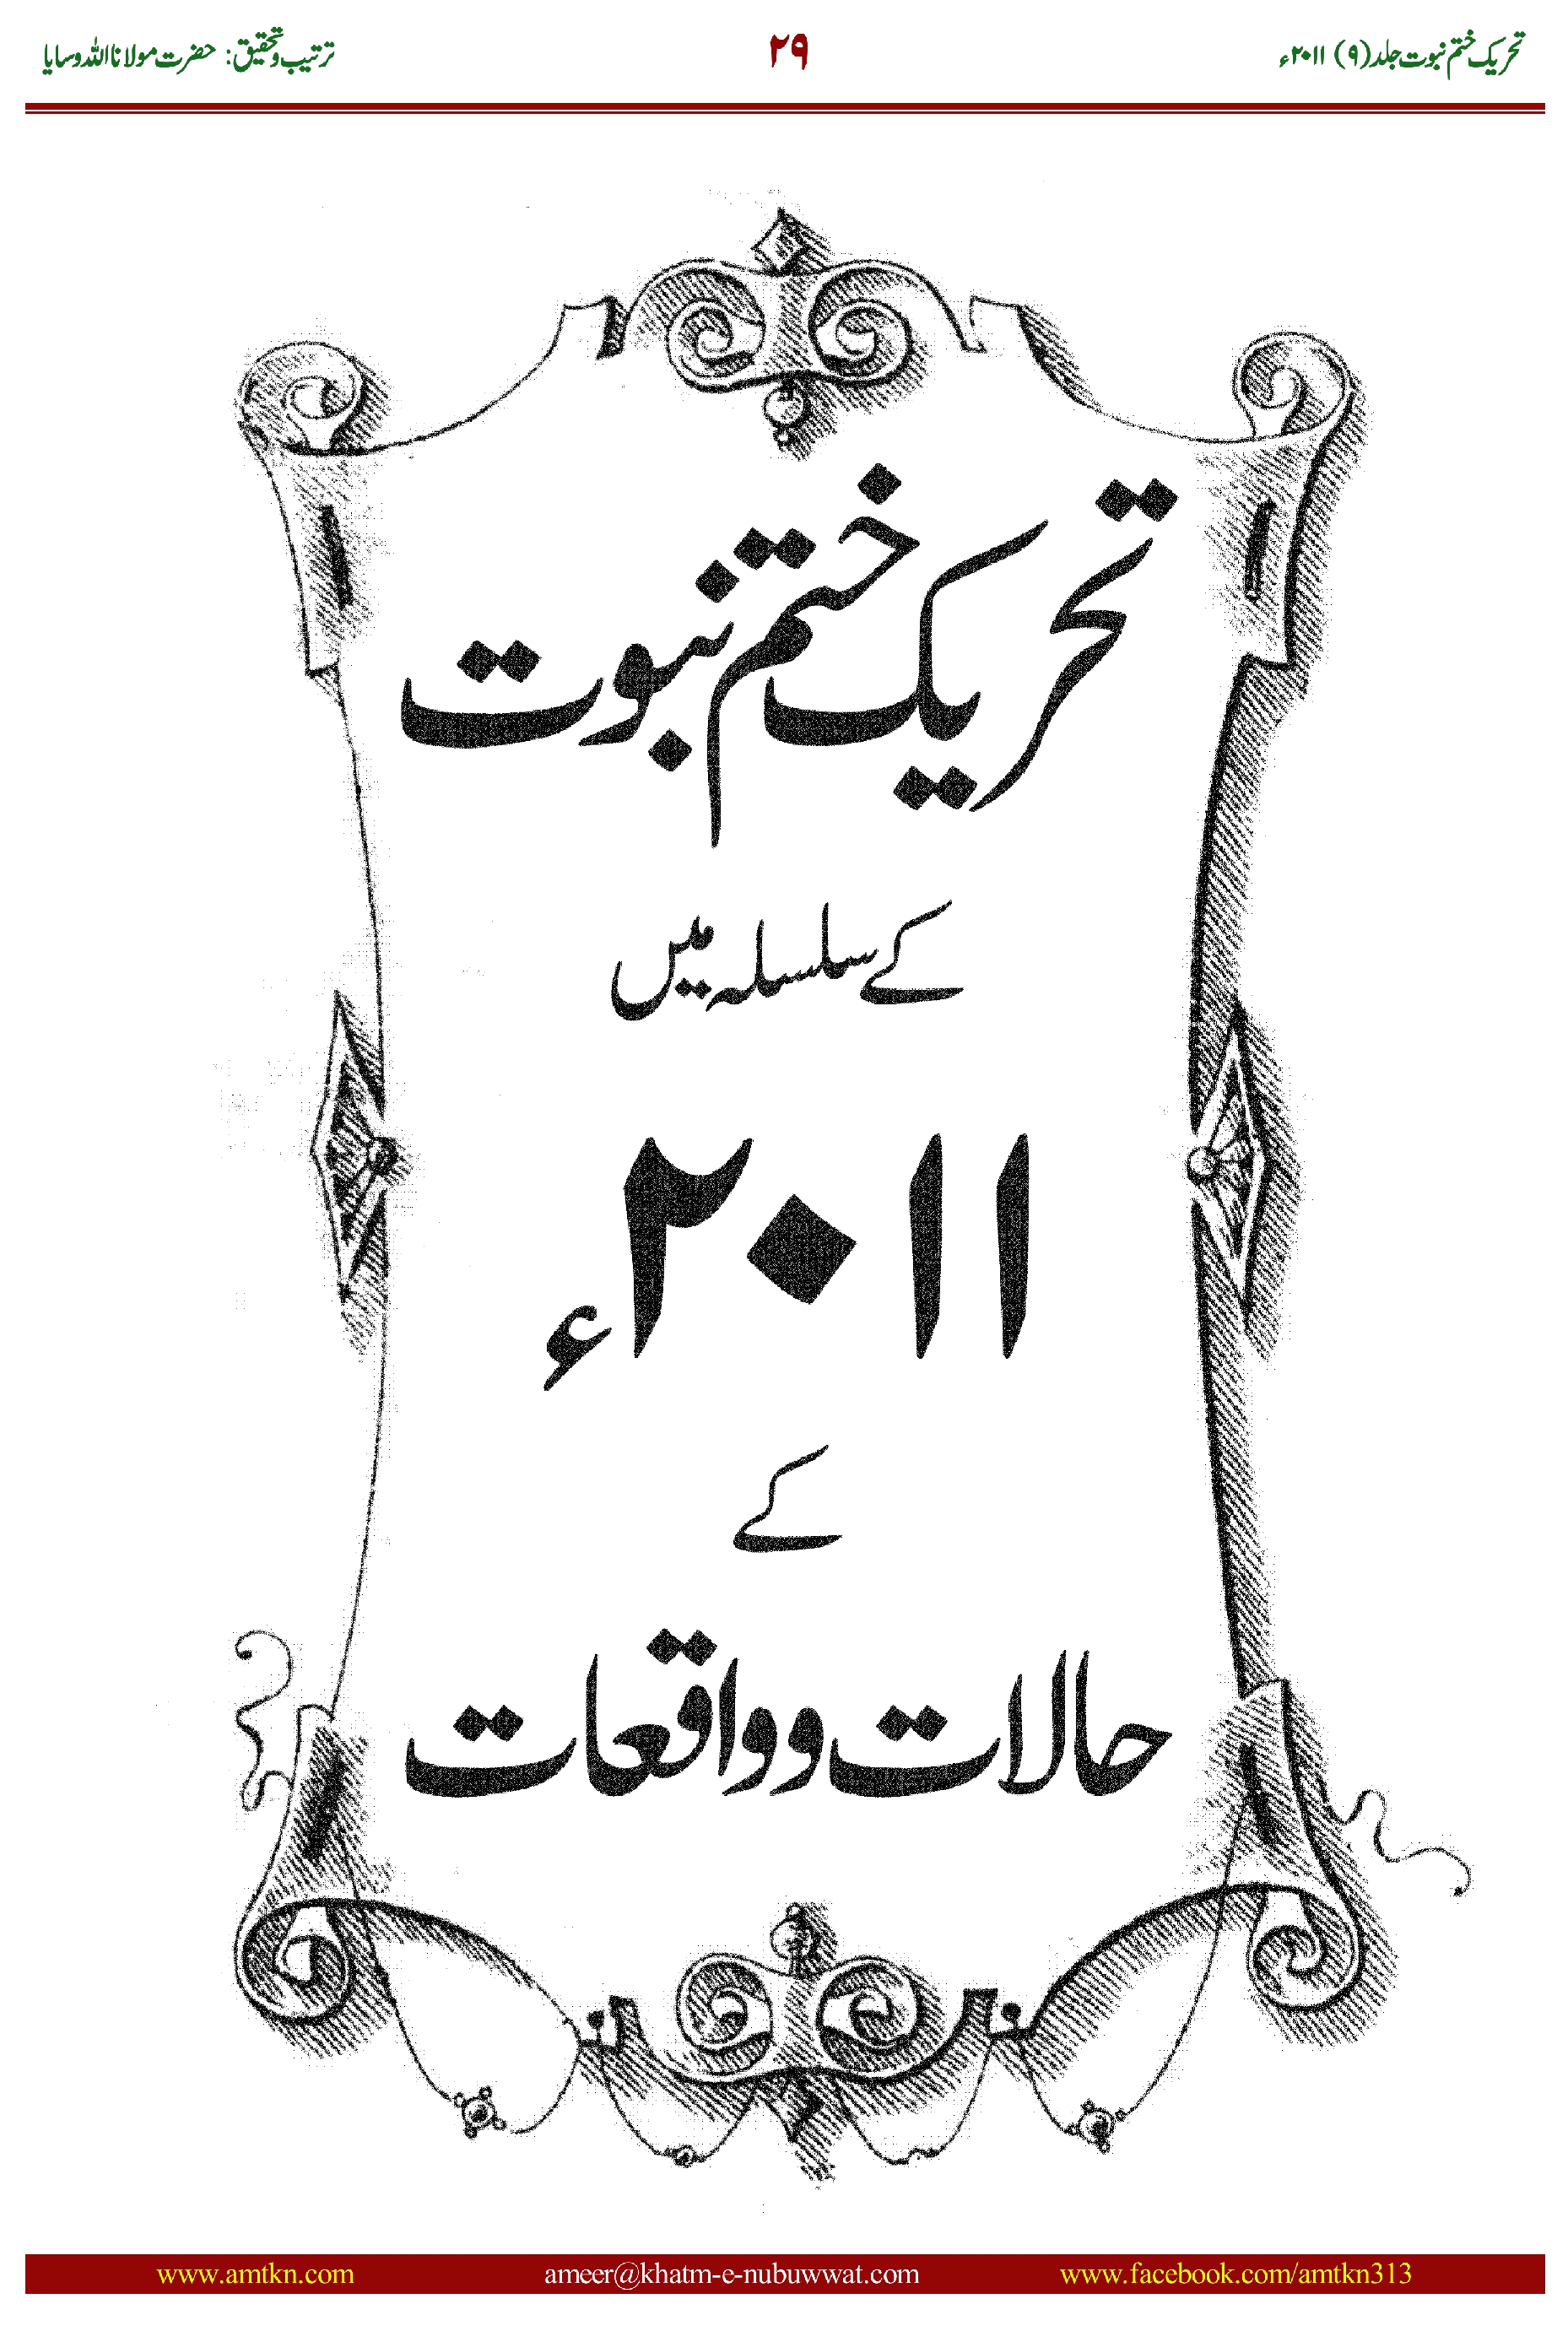 تحریک ختم نبوت جلد (۹) ۲۰۱۱ء ۲۹ ترتیب و تحقیق: حضرت مولانا اللہ وسایا
تحریک ختم نبوت
کے سلسلہ میں
۲۰۱۱ء
کے
حالات و واقعات
www.amtkn.com ameer@khatm-e-nubuwwat.com www.facebook.com/amtkn313